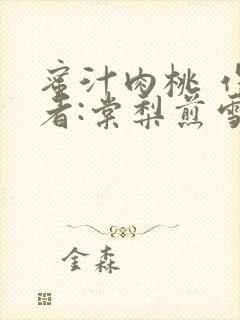 蜜汁肉桃
者:棠梨煎雪
金森